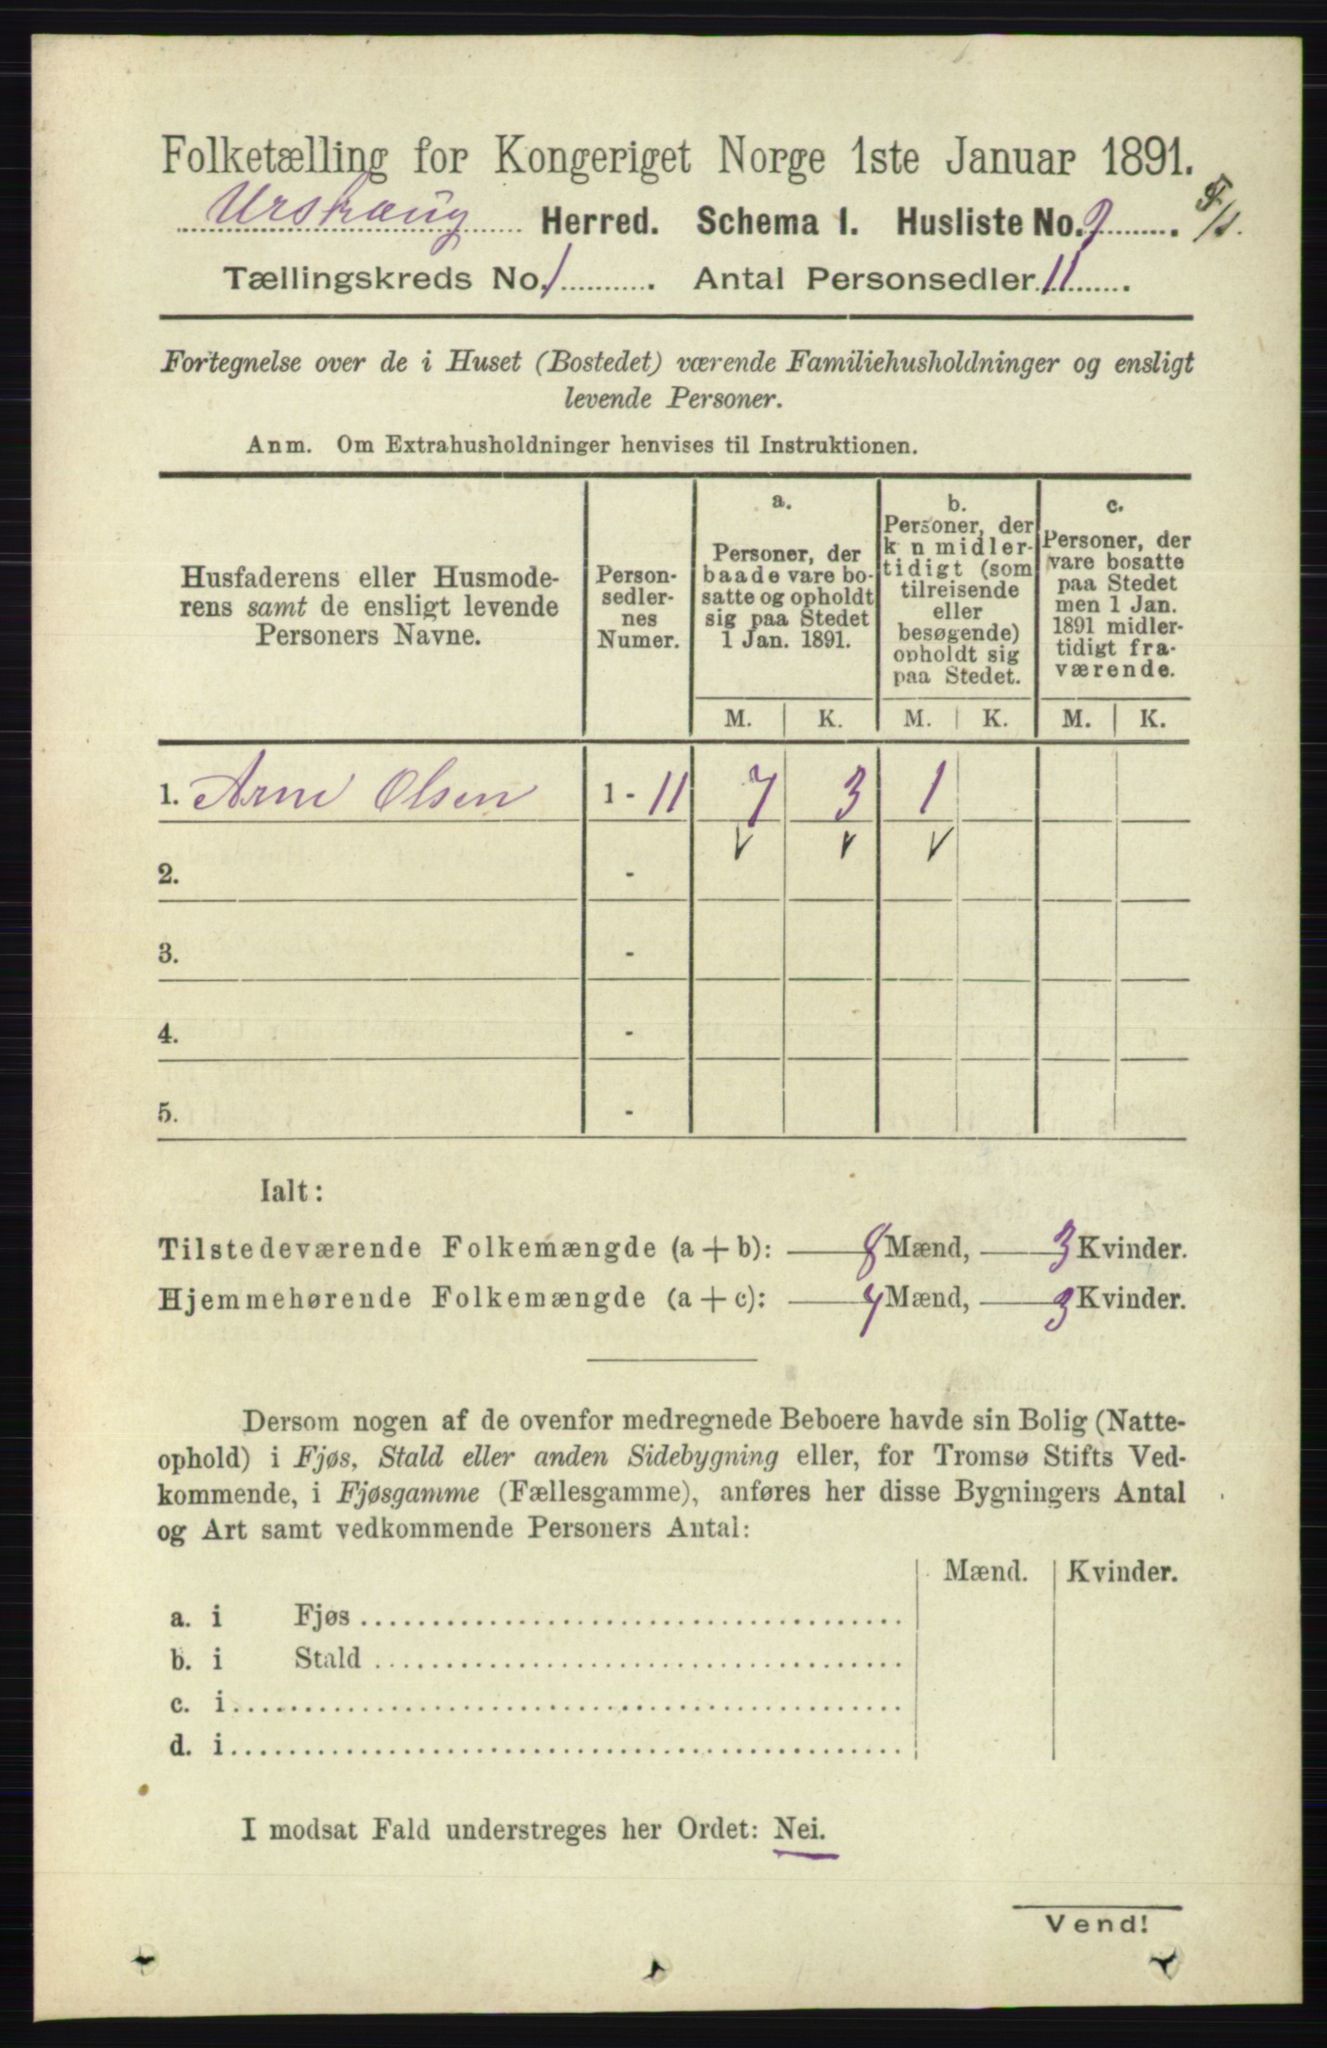 Folketælling for Kongeriget Norge 1ste Januar 1891.
Urskaug Herred. Schema 1. Husliste No. 9.
Tællingskreds No. 1. Antal Personsedler 11.
Fortegnelse over de i Huset (Bostedet) værende Familiehusholdninger og ensligt
levende Personer.
Anm. Om Extrahusholdninger henvises til Instruktionen.
Husfaderens eller Husmode-
rens samt de ensligt levende
Personers Navne.
Person-
sedler-
nes
Numer.
a.
Personer, der
baade vare bo-
satte og opholdt
sig paa Stedet
1 Jan. 1891.
b.
Personer, der
k n midler-
tidigt (som
tilreisende
eller
besøgende)
opholdt sig
paa Stedet.
c.
Personer, der
vare bosatte
paa Stedet
men 1 Jan.
1891 midler-
tidigt fra-
værende.
M. K. M. K. M. K.
1. Arne Olsen 1 - 11 7 3 1
2. -
3. -
4. -
5. -
Ialt:
Tilstedeværende Folkemængde (a + b): 8 Mænd, 3 Kvinder.
Hjemmehørende Folkemængde (a + c): 7 Mænd, 3 Kvinder.
Dersom nogen af de ovenfor medregnede Beboere havde sin Bolig (Natte-
ophold) i Fjøs, Stald eller anden Sidebygning eller, for Tromsø Stifts Ved-
kommende, i Fjøsgamme (Fællesgamme), anføres her disse Bygningers Antal
og Art samt vedkommende Personers Antal:
Mænd. Kvinder.
a. i Fjøs
b. i Stald
c. i
d. i
I modsat Fald understreges her Ordet: Nei.
Vend!